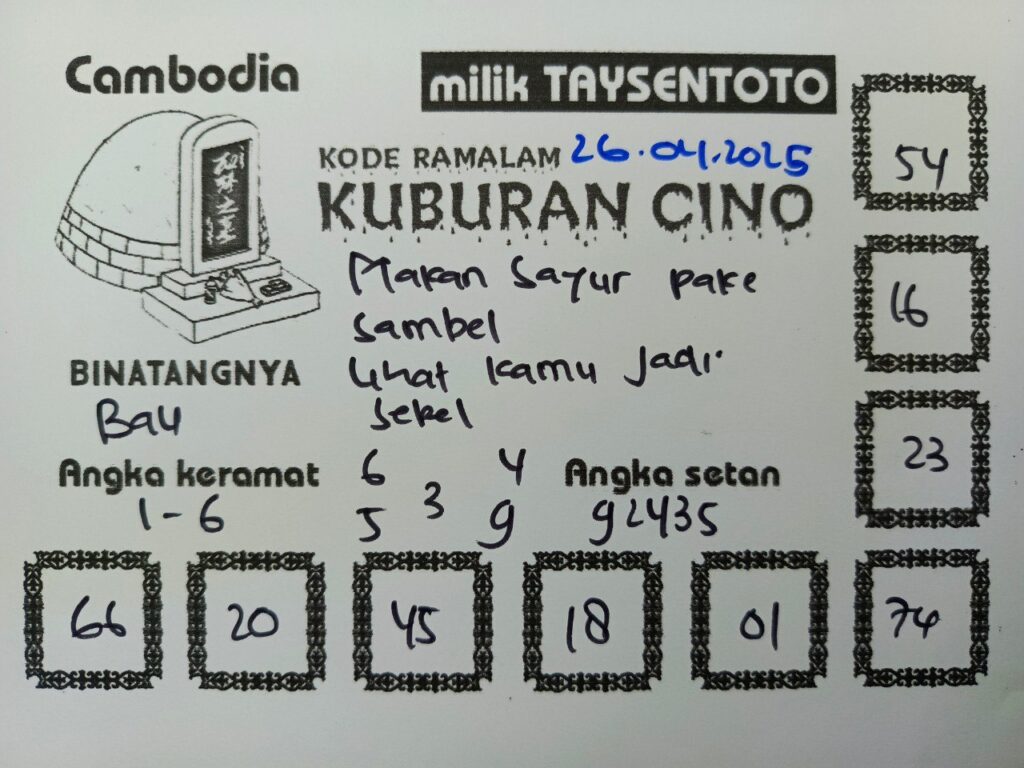 Cambodia
milik TAYSENTOTO
KODE RAMALAM 26.04.2025
KUBURAN CINO
Makan Sayur pake
sambel
lihat kamu jadi
sekel
BINATANGNYA
Angka keramat
1-6
6 4
3
5 9
Angka setan
92435
54
16
23
66 20 45 18 01 74